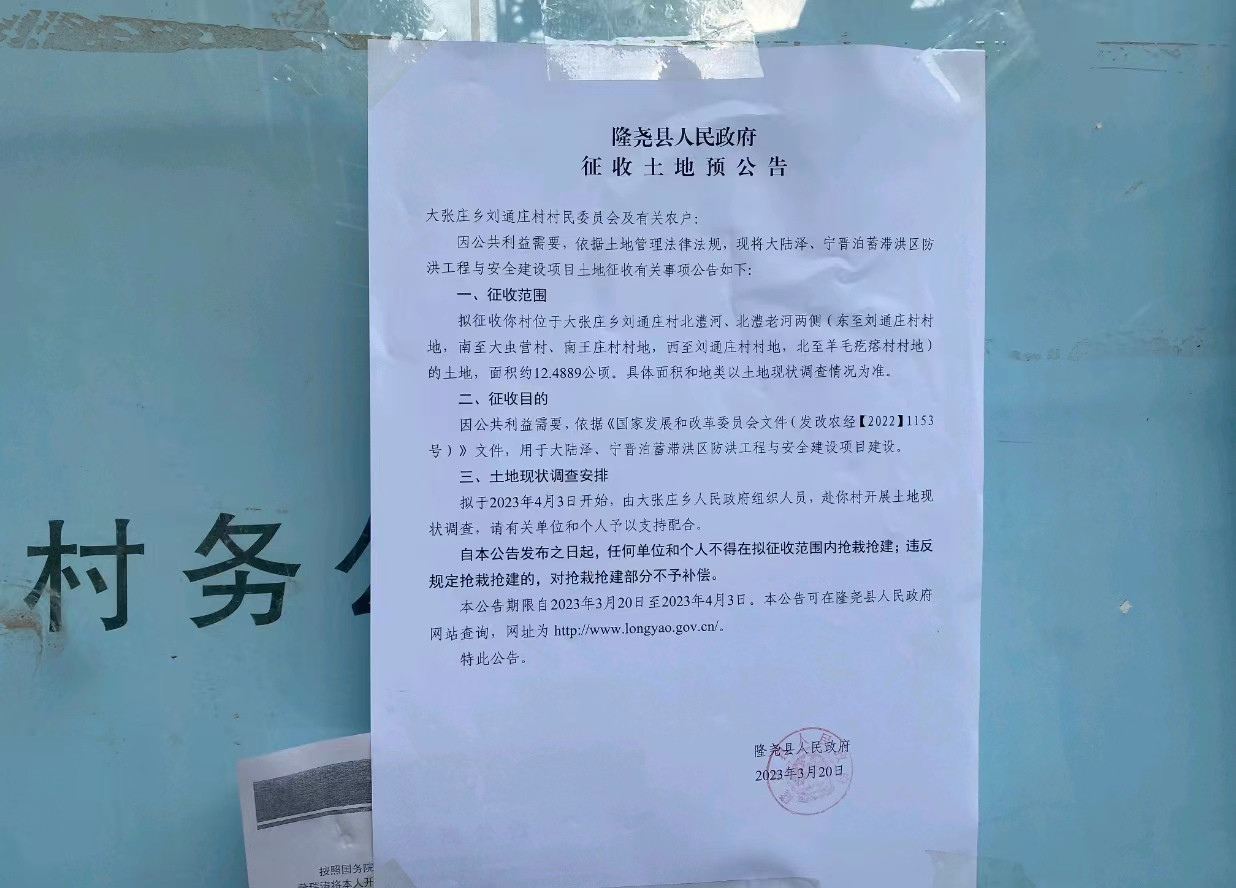 隆尧县人民政府
征收土地预公告
大张庄乡刘通庄村村民委员会及有关农户：
因公共利益需要，依据土地管理法律法规，现将大陆泽、宁晋泊蓄滞洪区防
洪工程与安全建设项目土地征收有关事项公告如下：
一、征收范围
拟征收你村位于大张庄乡刘通庄村北澧河、北澧老河两侧（东至刘通庄村村
地，南至大虫营村、南王庄村村地，西至刘通庄村村地，北至羊毛疙瘩村村地）
的土地，面积约12.4889公顷。具体面积和地类以土地现状调查情况为准。
二、征收目的
因公共利益需要，依据《国家发展和改革委员会文件（发改农经【2022】1153
号）》文件，用于大陆泽、宁晋泊蓄滞洪区防洪工程与安全建设项目建设。
三、土地现状调查安排
拟于2023年4月3日开始，由大张庄乡人民政府组织人员，赴你村开展土地现
状调查，请有关单位和个人予以支持配合。
自本公告发布之日起，任何单位和个人不得在拟征收范围内抢栽抢建；违反
规定抢栽抢建的，对抢栽抢建部分不予补偿。
本公告期限自2023年3月20日至2023年4月3日。本公告可在隆尧县人民政府
网站查询，网址为 http://www.longyao.gov.cn/。
特此公告。
隆尧县人民政府
2023年3月20日
村务
按照国务院
将本人开